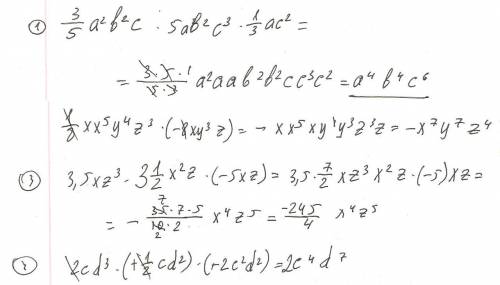 ① 3/5 a²b²c · 5ab²c³ · 1/3 ac² =
= 3·5·1/5·3 a²aab²b²cc³c² = a⁴b⁴c⁶
1/8 xx⁵y⁴z³ · (-8xy³z) = - xx⁵xy⁴y³z³z = -x⁷y⁷z⁴
③ 3,5xz³ · 3 1/2 x²z · (-5xz) = 3,5 · 7/2 xz³x²z · (-5)xz =
= - 35·7·5/10·2 x⁴z⁵ = -245/4 x⁴z⁵
2cd³ · (+1/2 cd²) · (-2c²d²) = 2c⁴d⁷